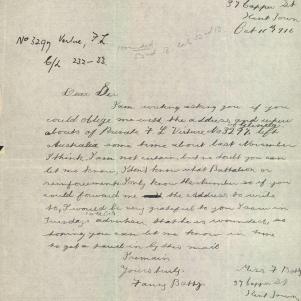 37 Capper St
Kent Town
Oct 11th 1916
No 3297 Vertue, F. L.
wounded
Dear Sir
I am writing asking you if you
could oblige me with the address and where
abouts of Private F L Vertue No 3297 left
Australia some time about last November
I think, I am not certain, but no doubt you can
let me know, I dont know what Battalion or
reinforcements I only know the number so if you
could forward me the address to write
to, I would be very grateful to you I saw in
Tuesdays advertiser that he is wounded, so
hoping you can let me know in time
to get a mail in by this mail
I remain
Yours truly
Fanny Batty
Miss F Batty
37 Capper St
Kent Town